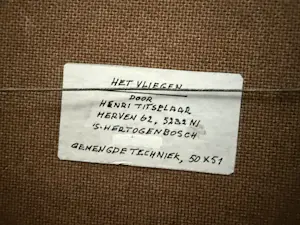 HET VLIEGEN
DOOR
HENRI TITSELAAR
HERVEN 62, 5232 N
'S-HERTOGENBOSCH
GEMENGDE TECHNIEK, 50 X 51